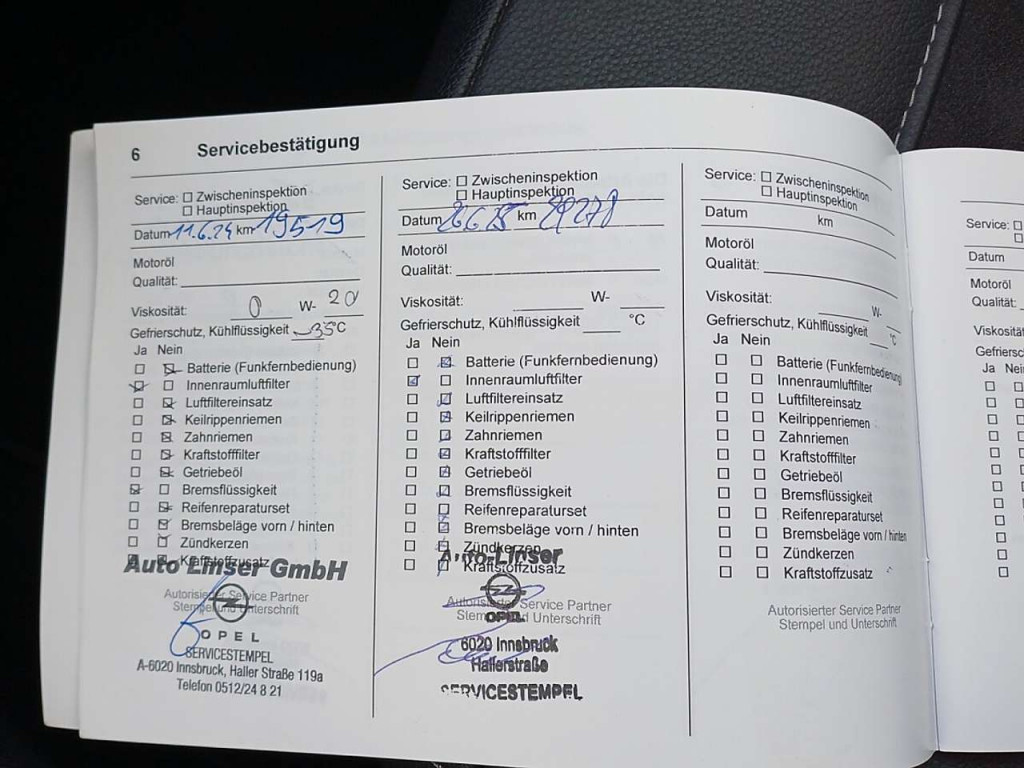 6 Servicebestätigung
Service: ☐ Zwischeninspektion
☐ Hauptinspektion
Datum 11.6.24 km 19519
Motoröl
Qualität:
Viskosität: 0 W- 20
Gefrierschutz, Kühlflüssigkeit -35°C
Ja Nein
☐ ☒ Batterie (Funkfernbedienung)
☒ ☐ Innenraumluftfilter
☐ ☒ Luftfiltereinsatz
☐ ☒ Keilrippenriemen
☐ ☒ Zahnriemen
☐ ☒ Kraftstofffilter
☐ ☒ Getriebeöl
☒ ☐ Bremsflüssigkeit
☐ ☒ Reifenreparaturset
☐ ☒ Bremsbeläge vorn / hinten
☐ ☒ Zündkerzen
Kraftstoffzusatz
Auto Linser GmbH
Autorisierter Service Partner
Stempel und Unterschrift
OPEL
SERVICESTEMPEL
A-6020 Innsbruck, Haller Straße 119a
Telefon 0512/24 8 21
Service: ☐ Zwischeninspektion
☐ Hauptinspektion
Datum km 29278
Motoröl
Qualität:
Viskosität: W-
Gefrierschutz, Kühlflüssigkeit °C
Ja Nein
☐ ☒ Batterie (Funkfernbedienung)
☒ ☐ Innenraumluftfilter
☐ ☒ Luftfiltereinsatz
☐ ☒ Keilrippenriemen
☐ ☒ Zahnriemen
☐ ☒ Kraftstofffilter
☐ ☒ Getriebeöl
☐ ☒ Bremsflüssigkeit
☐ ☒ Reifenreparaturset
☐ ☒ Bremsbeläge vorn / hinten
☐ ☒ Zündkerzen
☐ ☒ Kraftstoffzusatz
Auto-Linser
Autorisierter Service Partner
Stempel und Unterschrift
OPEL
6020 Innsbruck
Hallerstraße
SERVICESTEMPEL
Service: ☐ Zwischeninspektion
☐ Hauptinspektion
Datum km
Motoröl
Qualität:
Viskosität: W-
Gefrierschutz, Kühlflüssigkeit °C
Ja Nein
☐ ☐ Batterie (Funkfernbedienung)
☐ ☐ Innenraumluftfilter
☐ ☐ Luftfiltereinsatz
☐ ☐ Keilrippenriemen
☐ ☐ Zahnriemen
☐ ☐ Kraftstofffilter
☐ ☐ Getriebeöl
☐ ☐ Bremsflüssigkeit
☐ ☐ Reifenreparaturset
☐ ☐ Bremsbeläge vorn / hinten
☐ ☐ Zündkerzen
☐ ☐ Kraftstoffzusatz
Autorisierter Service Partner
Stempel und Unterschrift
Service: ☐
Datum
Motoröl
Qualität:
Ja